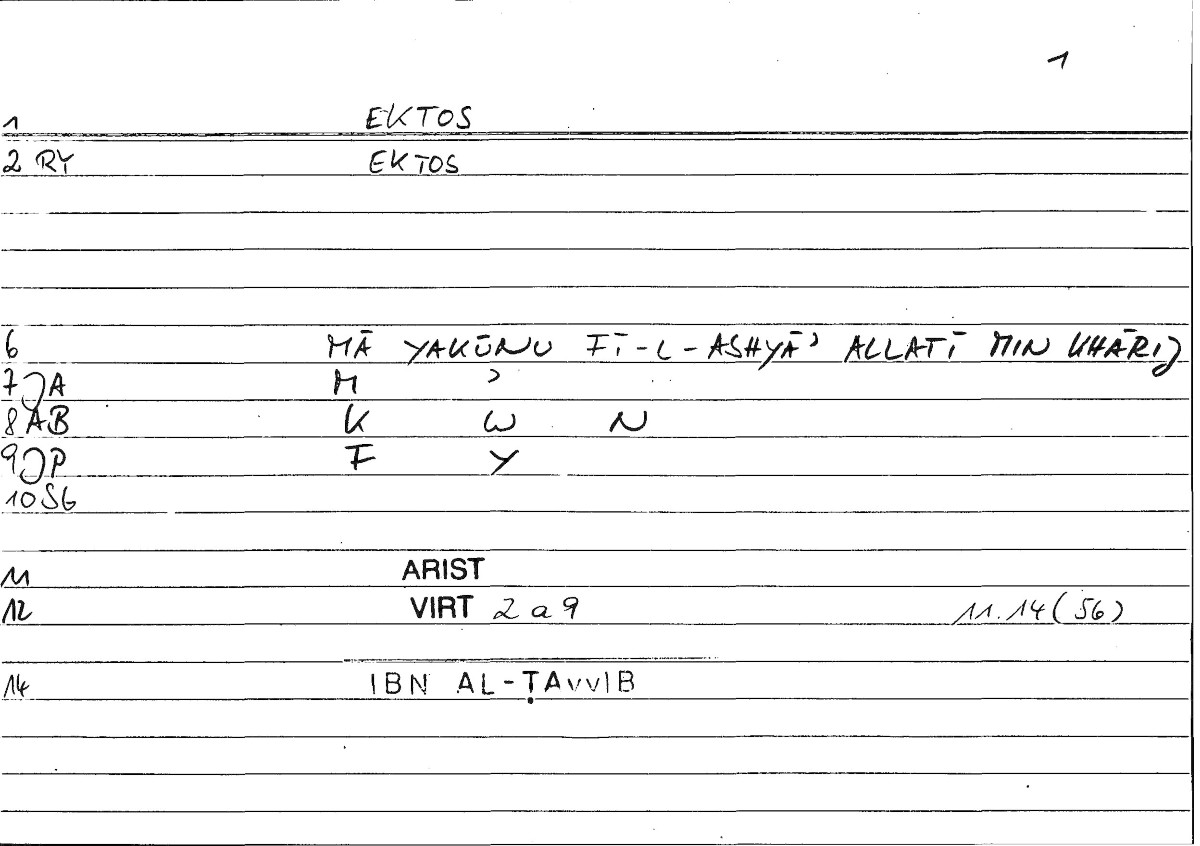 1
1 EKTOS
2 RY EKTOS
6 MĀ YAKŪNU FĪ-L-ASHYĀʾ ALLATĪ MIN KHĀRIJ
7 JA M ʾ
8 AB K W N
9 JP F Y
10 SG
11 ARIST
12 VIRT 2 a 9 11.14 (56)
14 IBN AL-ṬAYYIB